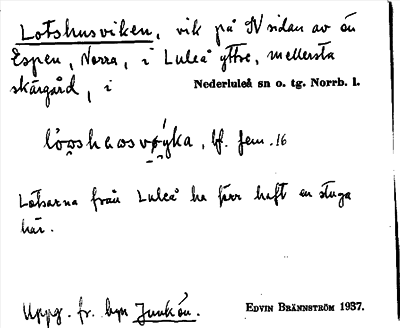 Lotshusviken, vik på N sidan av ön
Espen, Norra, i Luleå yttre, mellersta
skärgård, i Nederluleå sn o. tg. Norrb. l.
bf. fem. 16
Lotsarna från Luleå ha förr haft en stuga
här.
Uppg. fr. byn Junkön. EDVIN BRÄNNSTRÖM 1937.